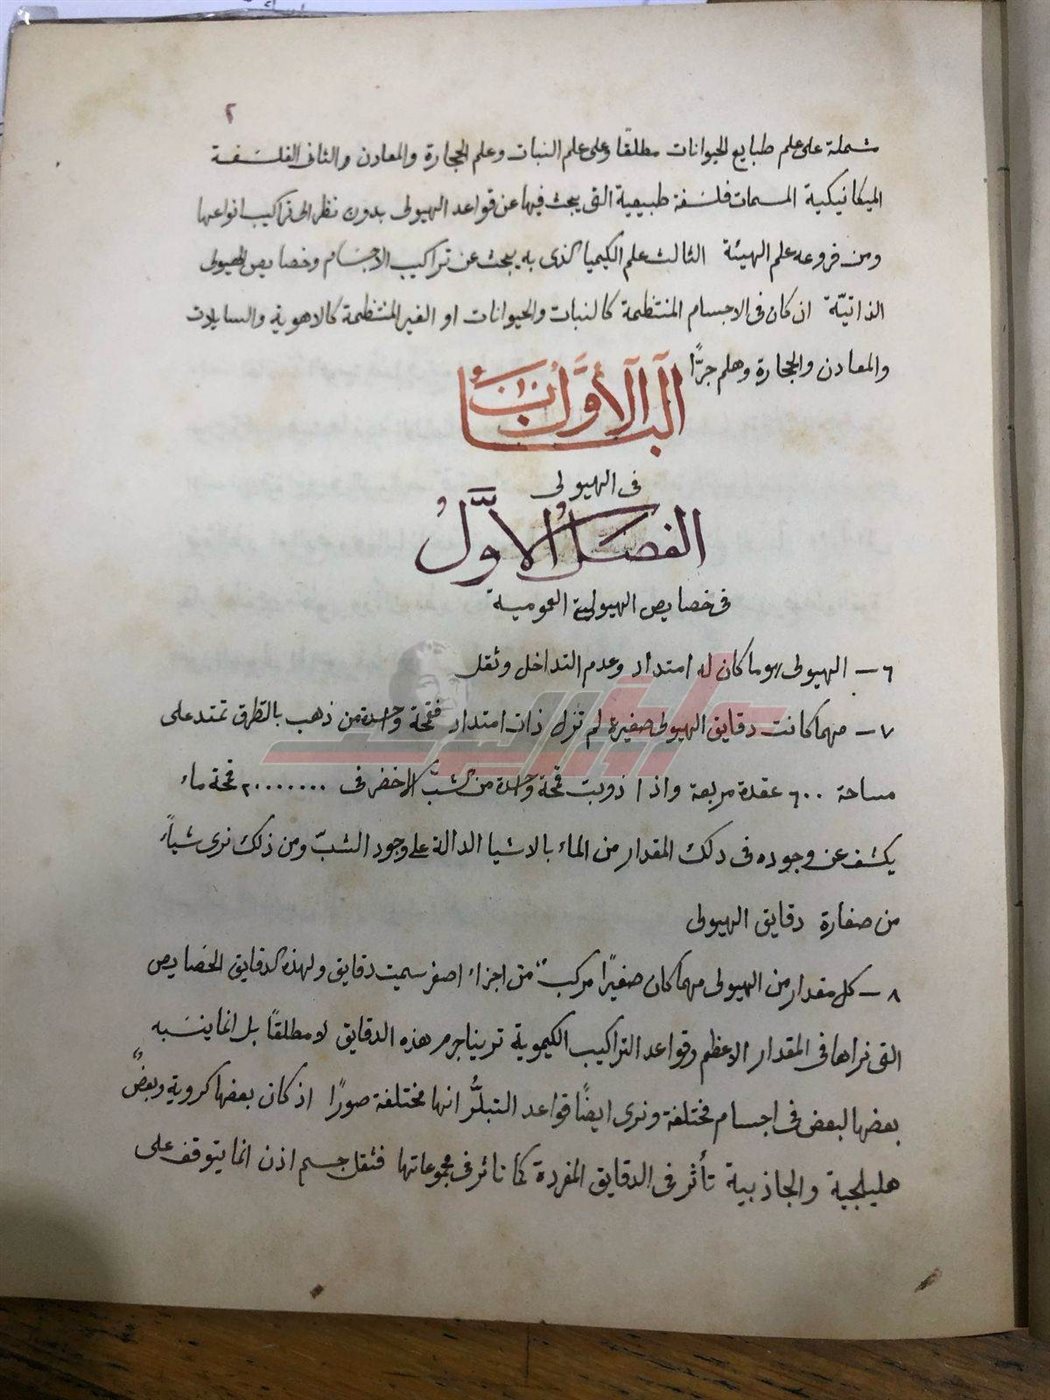 ٢
مشتملة على علم طبايع الحيوانات مطلقًا وعلى علم النبات وعلم الحجارة والمعادن والثانى الفلسفة
الميكانيكية المسمات فلسفة طبيعية التى يبحث فيها عن قواعد الهيولى بدون نظر الى تراكيب انواعها
ومن فروعه علم الهيئة الثالث علم الكيميا الذى به يبحث عن تراكيب الاجسام وخصايص الهيولى
الذاتيّة ان كان فى الاجسام المنتظمة كالنبات والحيوانات او الغير المنتظمة كالاهوية والسايلات
والمعادن والحجارة وهلم جرًّا
الباب الأوّل
فى الهيولى
الفصل الاوّل
فى خصايص الهيولية العمومية
٦ – الهيولى هوما كان له امتداد وعدم التداخل وثقل
٧ – مهما كانت دقايق الهيولى صغيرة لم تزل ذات امتداد فقمحة واحدة من ذهب بالتطرق تمتد على
مساحة ٦٠٠ عقدة مربعة واذا ذوبت قمحة واحدة من الشبّ الاخضر فى ٢٠٠٠٠٠٠٠ قمحة ماء
يكشف عن وجوده فى ذلك المقدار من الماء بالاشيا الدالة على وجود الشبّ ومن ذلك نرى شياءً
من صغارة دقايق الهيولى
٨ – كل مقدار من الهيولى مهما كان صغيرًا مركبٌ من اجزاء اصغر سميت دقايق ولهذه الدقايق الخصايص
التى نراها فى المقدار الاعظم وقواعد التراكيب الكيموية ترينا جرم هذه الدقايق لا مطلقًا بل انما ينسبه
بعضها البعض فى اجسام مختلفة ونرى ايضًا قواعد التبلُّر انها مختلفة صورًا اذ كان بعضها كروية وبعضٌ
هليلجية والجاذبية تأثر فى الدقايق المفردة كما تاثر فى مجموعاتها فثقل جسم اذن انما يتوقف على